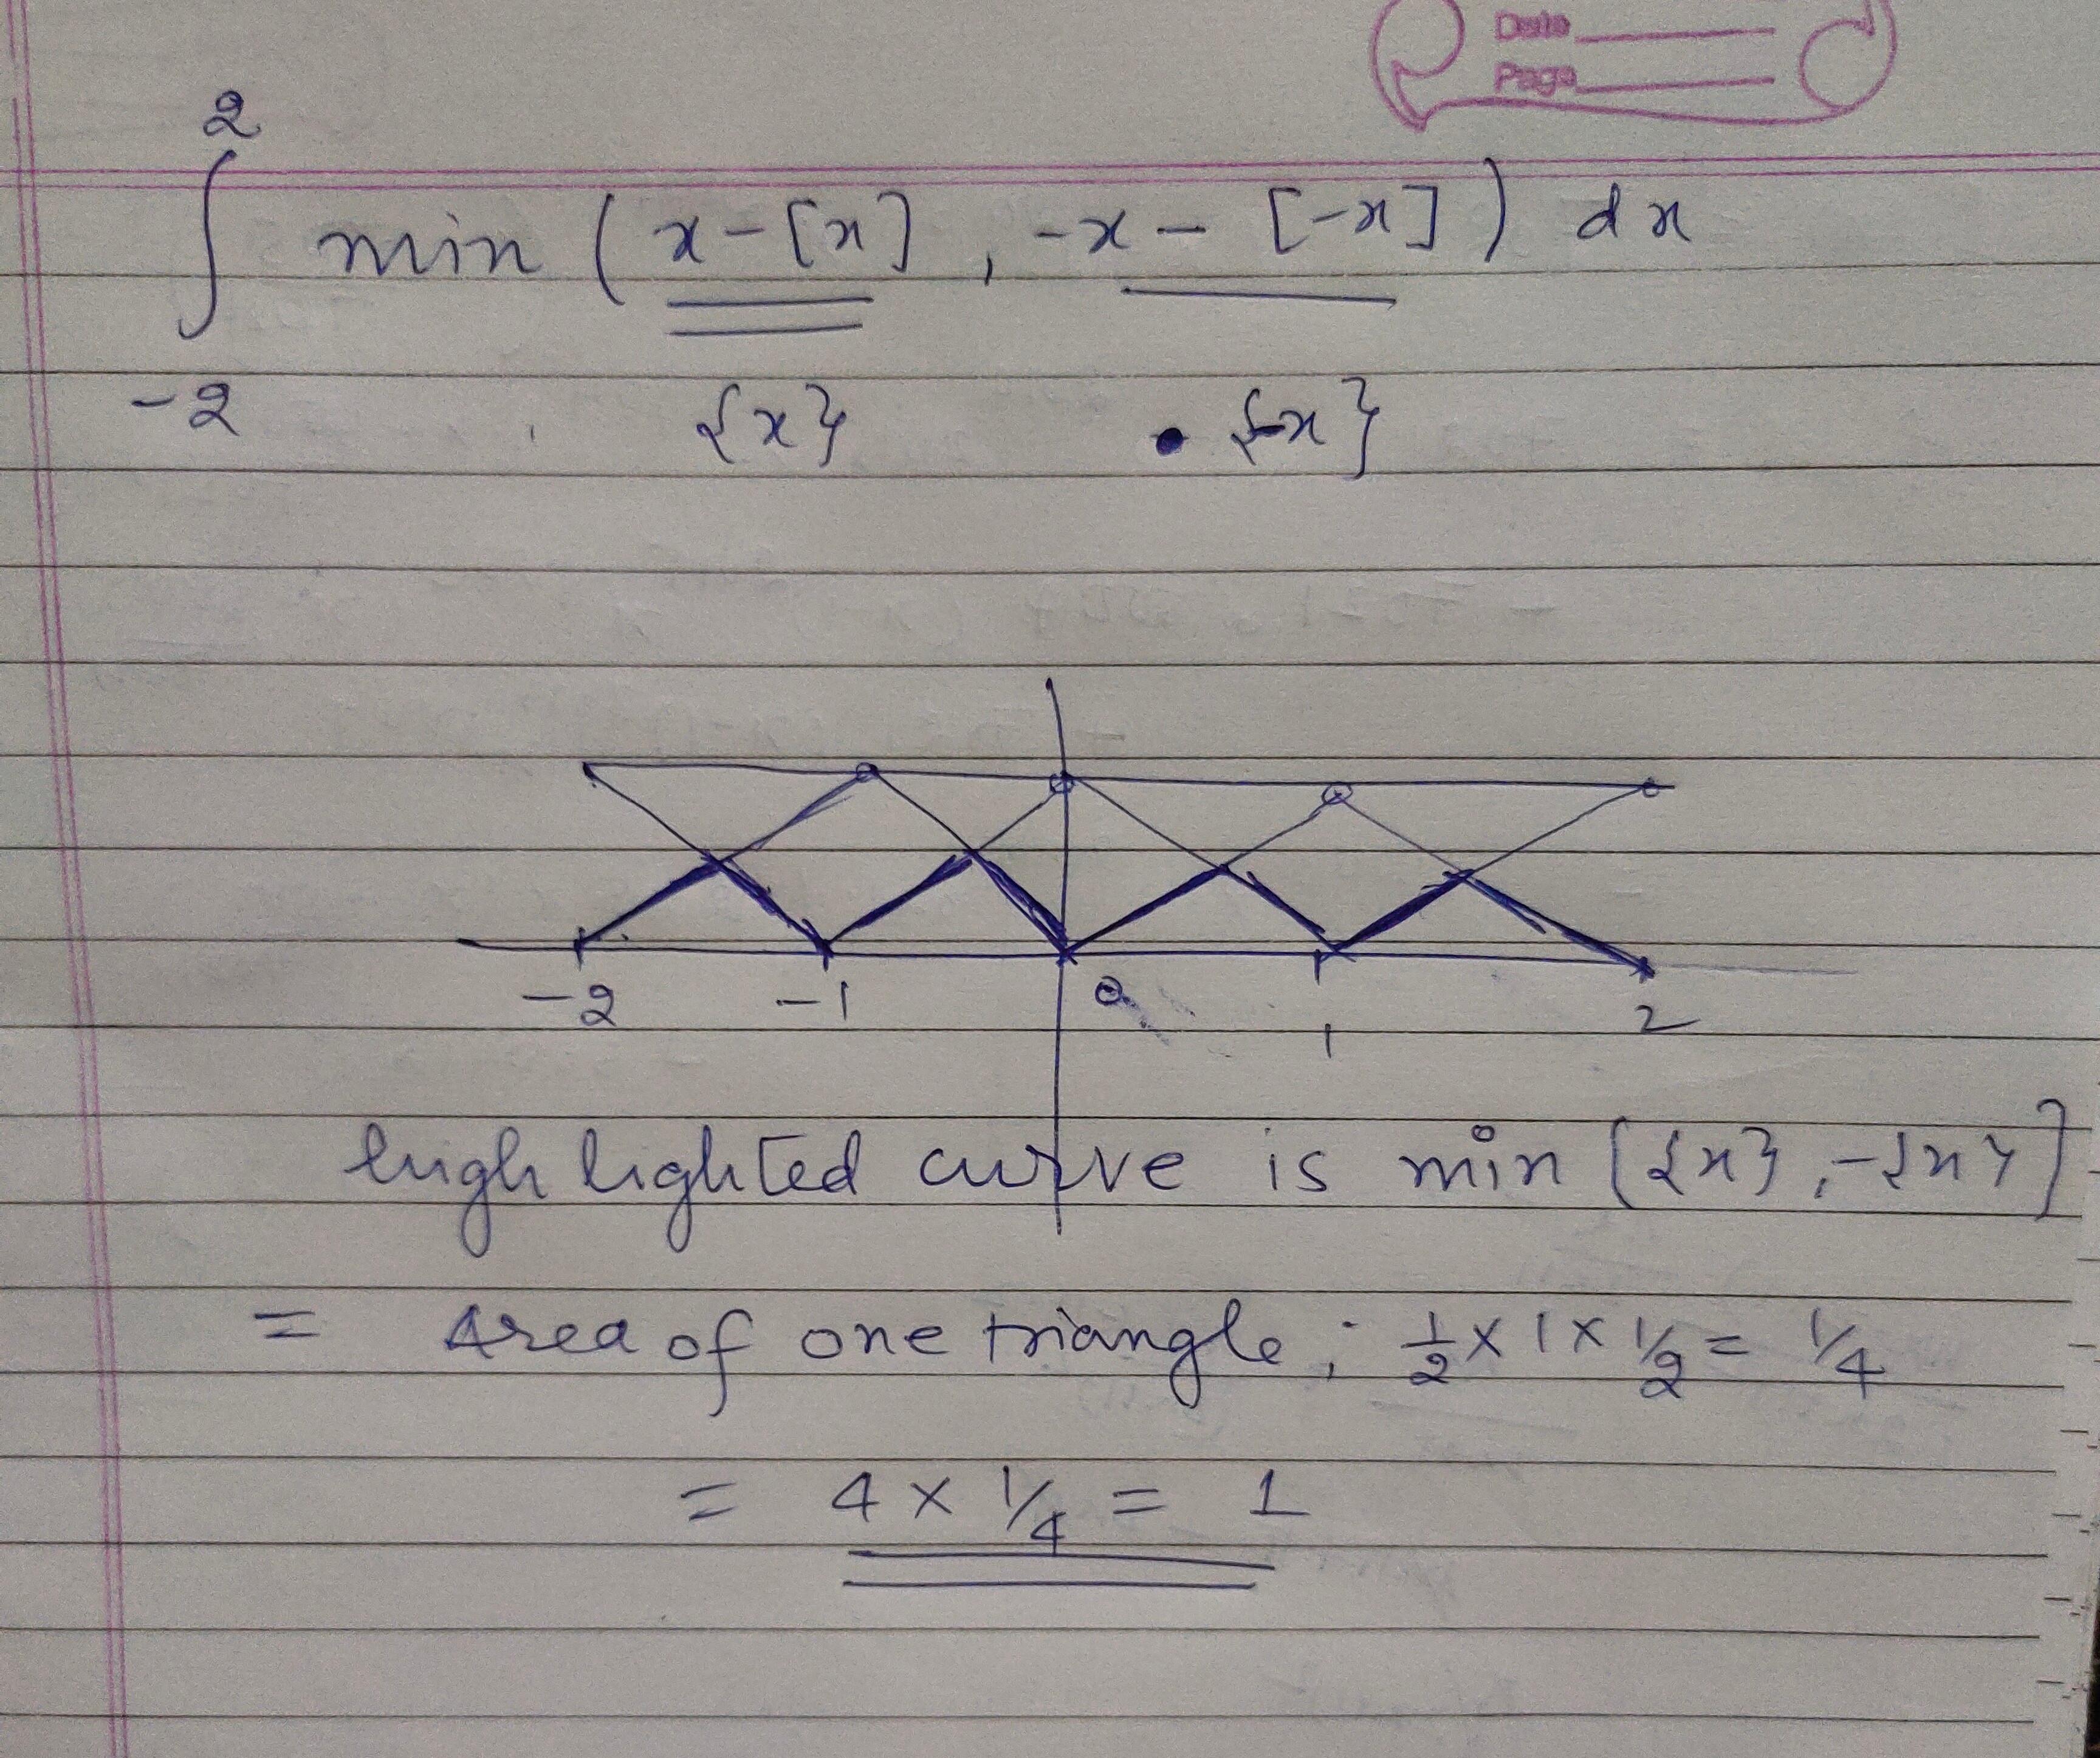 Date
Page
2
∫ min ( x - [x] , -x - [-x] ) dx
-2 {x} {-x}
-2 -1 0 1 2
highlighted curve is min [{x}, -{x}]
= Area of one triangle ; 1/2 x 1 x 1/2 = 1/4
= 4 x 1/4 = 1